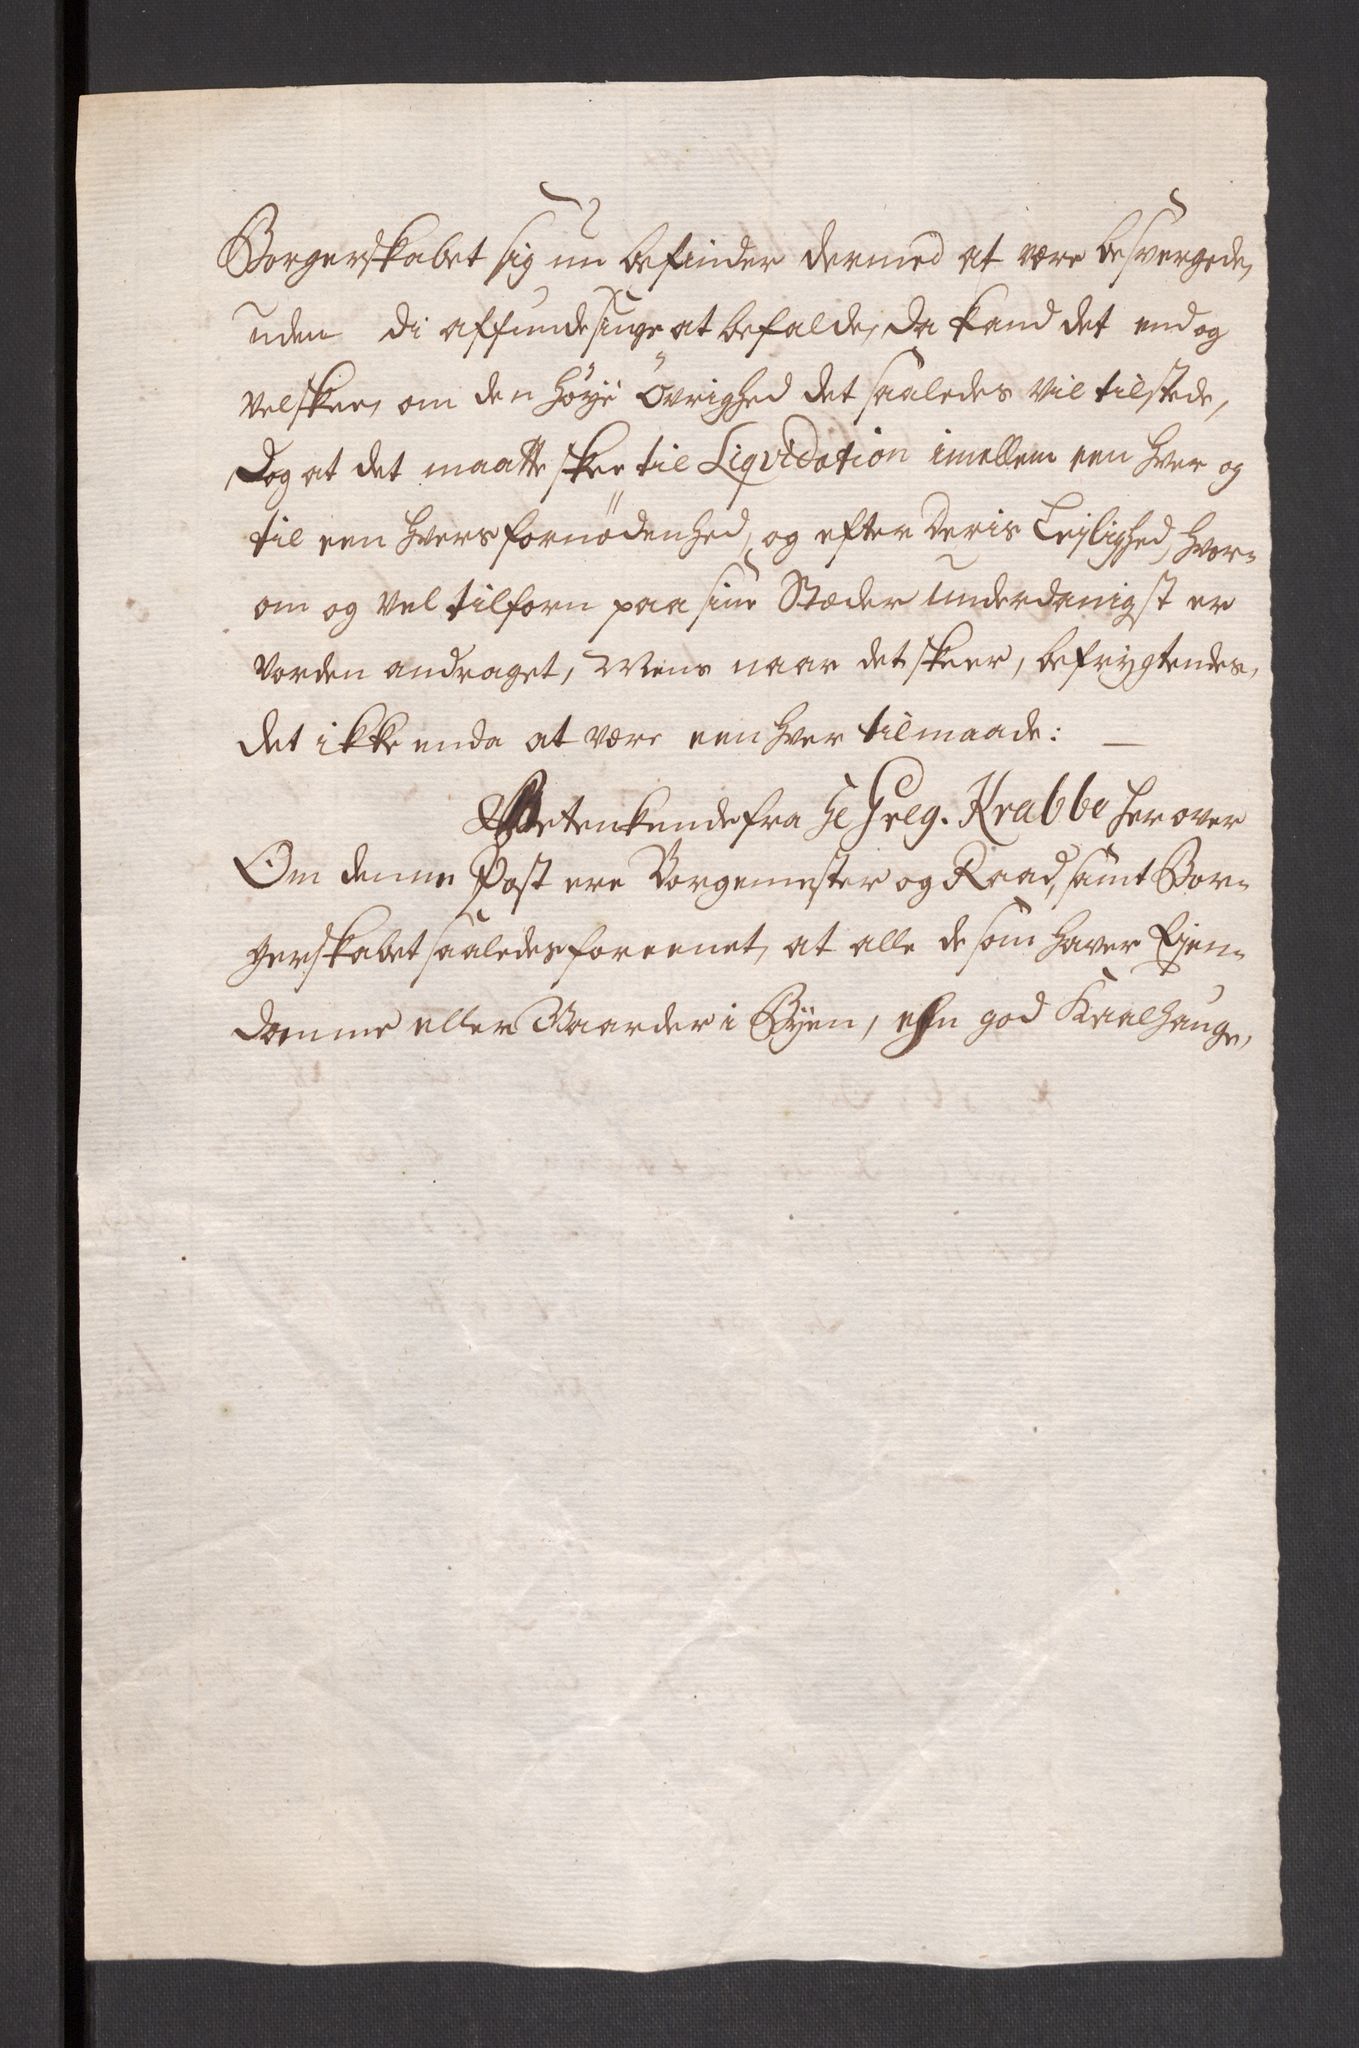 Borgerskabet sig nu befinder dermed at være besvergede,
uden di affundesinge at befalde, da kand det end og
vel skee, om den høÿe Övrighed det saaledes vil tilstede,
Dog at det maatte skee til Liqvidation imellem een hver og
til een hvers fornödenhed, og efter Deris Leylighed, hvor-
om og vel tilforn paa sine Stæder underdanigst er
vorden andraget, Mens naar det skeer, befrygtendes,
det ikke enda at være een hver tilmaade: —
Betenkende fra Hl Greg. Krabbe her over
Om denne Post ere Borgemester og Raad, samt Bor-
gerskabet saaledes foreenet, at alle de som haver Eien-
domme eller Gaarder i Bÿen, een god Kaalhauge,